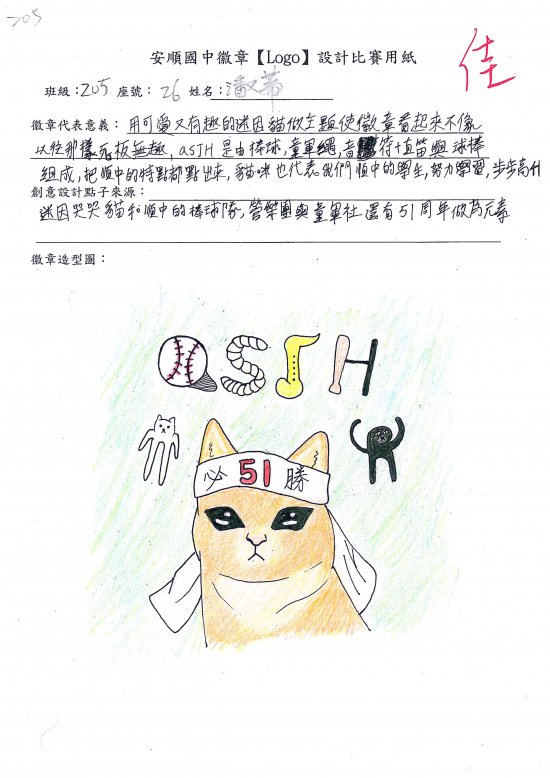 205
安順國中徽章【Logo】設計比賽用紙
佳
班級：205 座號：26 姓名：潘
徽章代表意義：用可愛又有趣的迷因貓做主題使徽章看起來不像
以往那樣死板無趣，aSJH 是由棒球，童軍繩，直笛與球棒
組成，把順中的特點都點出來，貓咪也代表我們順中的學生，努力學習，步步高升
創意設計點子來源：
迷因哭哭貓和順中的棒球隊，管樂團與童軍社還有51周年做為元素
徽章造型圖：
aSJH
必 51 勝